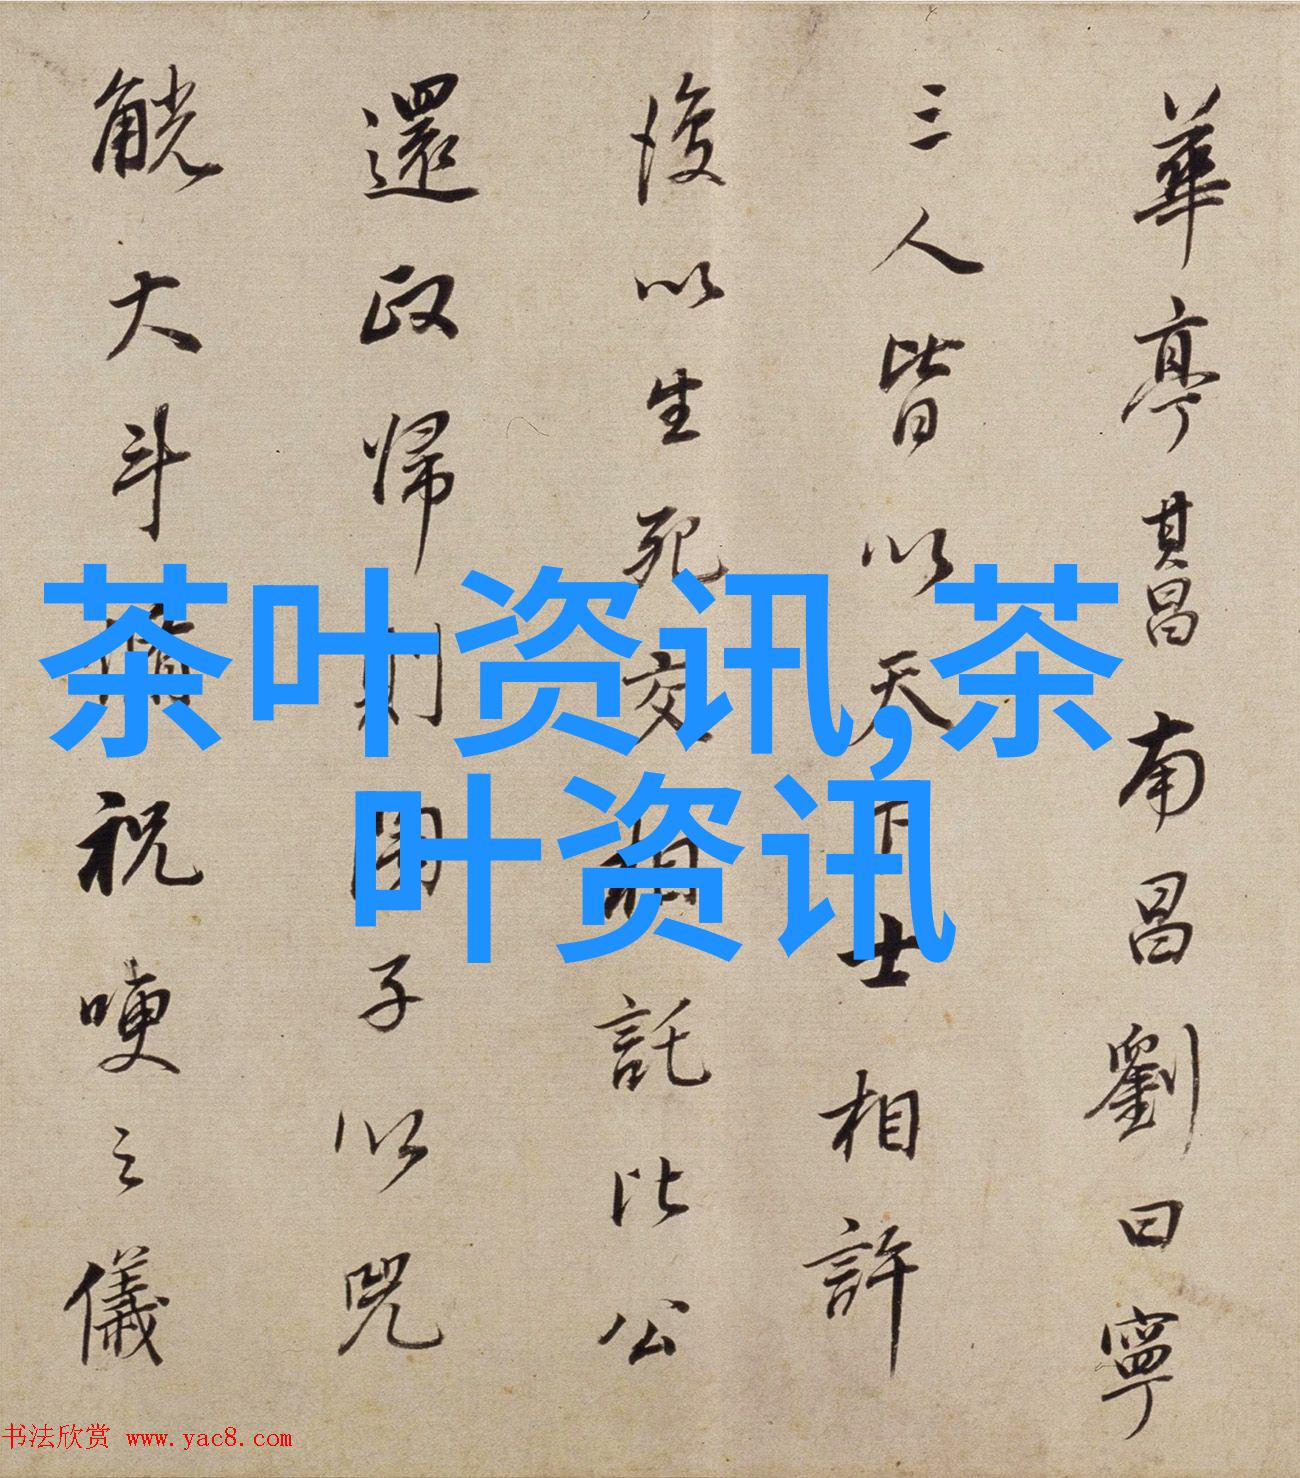 華亭其昌南昌劉曰寧
三人皆以天下士相許
後以生死交相託比公
還政帰則子以兕
觥大斗祝哽之儀
茶叶资讯,茶
叶资讯
书法欣赏 www.yac8.com